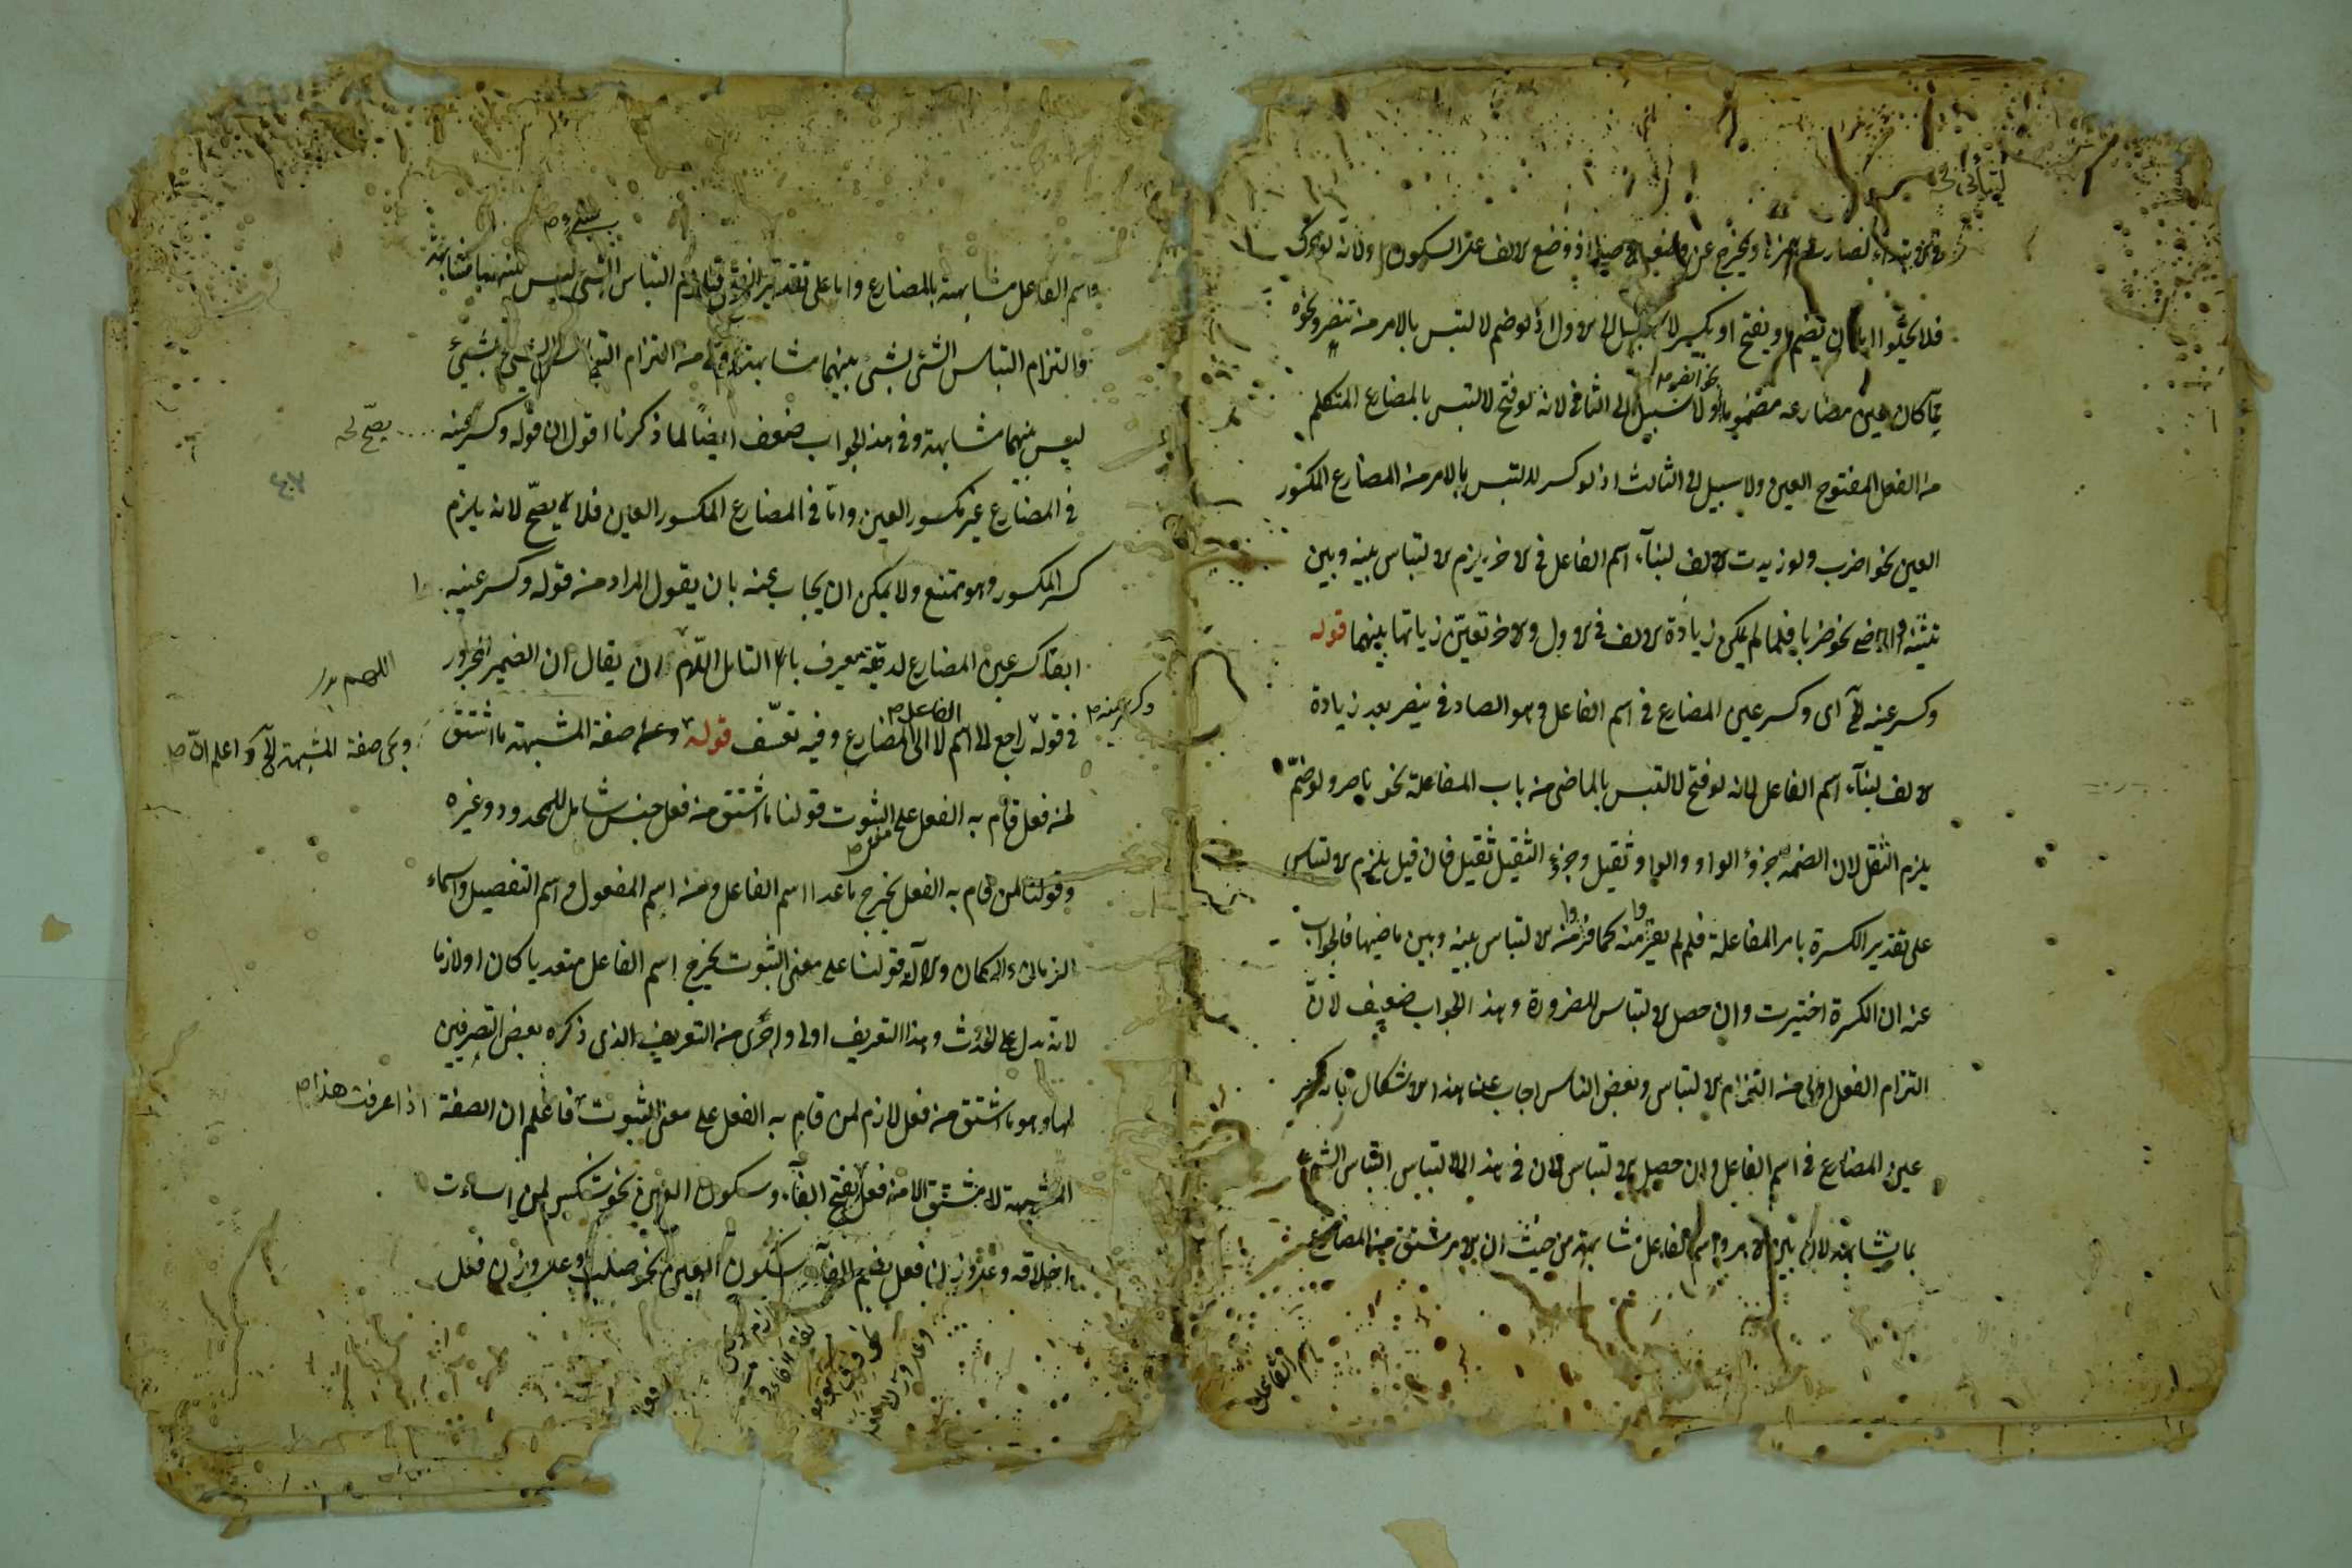 في الابتداء لصار همزة ويخرج عن وضعه الاصلي اذ وضع الالف على السكون ولانه لو حرك
فلا يخلو اما ان يضم او يفتح او يكسر لا سبيل الى الاول اذ لو ضم لالتبس بالامر من تنصر ونحوه
مما كان عين مضارعه مضموما ولا سبيل الى الثاني لانه لو فتح لالتبس بالمضارع المتكلم
من الفعل المفتوح العين ولا سبيل الى الثالث اذ لو كسر لالتبس بالامر من المضارع المكسور
العين نحو اضرب ولو زيدت الالف لبناء اسم الفاعل في الاخر يلزم الالتباس بينه وبين
تثنية الماضي نحو ضربا فلما لم يكن زيادة الالف في الاول والاخر تعين زيادتها بينهما قوله
وكسر عينه الخ اى وكسر عين المضارع في اسم الفاعل وهو الصاد في ينصر بعد زيادة
الالف لبناء اسم الفاعل لانه لو فتح لالتبس بالماضى من باب المفاعلة نحو ناصر ولو ضم
يلزم الثقل لان الضمة جزؤ الواو والواو ثقيل وجزؤ الثقيل ثقيل فان قيل يلزم الالتباس
على تقدير الكسرة بامر المفاعلة فلم لم يفروا منه كما فروا من الالتباس بينه وبين ماضيها فالجواب
عنه ان الكسرة اختيرت وان حصل الالتباس للضرورة وهذا الجواب ضعيف لان
التزام الفعل اولى من التزام الالتباس وبعض الناس اجاب عن هذا الاشكال بان كسر
عين المضارع في اسم الفاعل وان حصل الالتباس لان في هذا الالتباس التباس الشئ
بما يشابهه لان بين الامر واسم الفاعل مشابهة من حيث ان الامر مشتق من المضارع
واسم الفاعل مشابهة بالمضارع واما على تقدير الفتح فيلزم التباس الشئ ليس بينهما مشابهة
والتزام التباس الشئ بشئ بينهما مشابهة اولى من التزام التباس الشئ بشئ
ليس بينهما مشابهة وفى هذا الجواب ضعف ايضا لما ذكرنا اقول ان قوله وكسر عينه يصح
فى المضارع غير مكسور العين واما فى المضارع المكسور العين فلا يصح لانه يلزم
كسر المكسور وهو ممتنع ولا يمكن ان يجاب عنه بان يقول المراد من قوله وكسر عينه
ابقا كسر عين المضارع لدقيقة يعرف بالتامل اللهم ان يقال ان الضمير المجرور
في قوله وكسر عينه راجع الى اسم الفاعل لا الى المضارع وفيه تعسف قوله
وعلم صفة المشبهة ما اشتق
وبنى صفة المشبهة الخ واعلم ان
من فعل قام به الفعل على الثبوت قولنا ما اشتق من فعل جنس شامل للمحدود وغيره
وقولنا لمن قام به الفعل يخرج ما عدا اسم الفاعل ومنه اسم المفعول واسم التفضيل واسماء
الزمان والمكان والآلة قولنا على معنى الثبوت يخرج اسم الفاعل متعديا كان او لازما
لانه يدل على الحدوث وهذا التعريف اولى واحرى من التعريف الذى ذكره بعض التصرفيين
لها وهو ما اشتق من فعل لازم لمن قام به الفعل على معنى الثبوت اذا عرفت هذا فاعلم ان الصفة
المشبهة لا يشتق الا من فعل بفتح الفاء وسكون العين نحو شكس لمن اساءت
اخلاقه وعلى وزن فعل بضم الفاء وسكون العين نحو صلب وعلى وزن فعل
اسم الفاعل